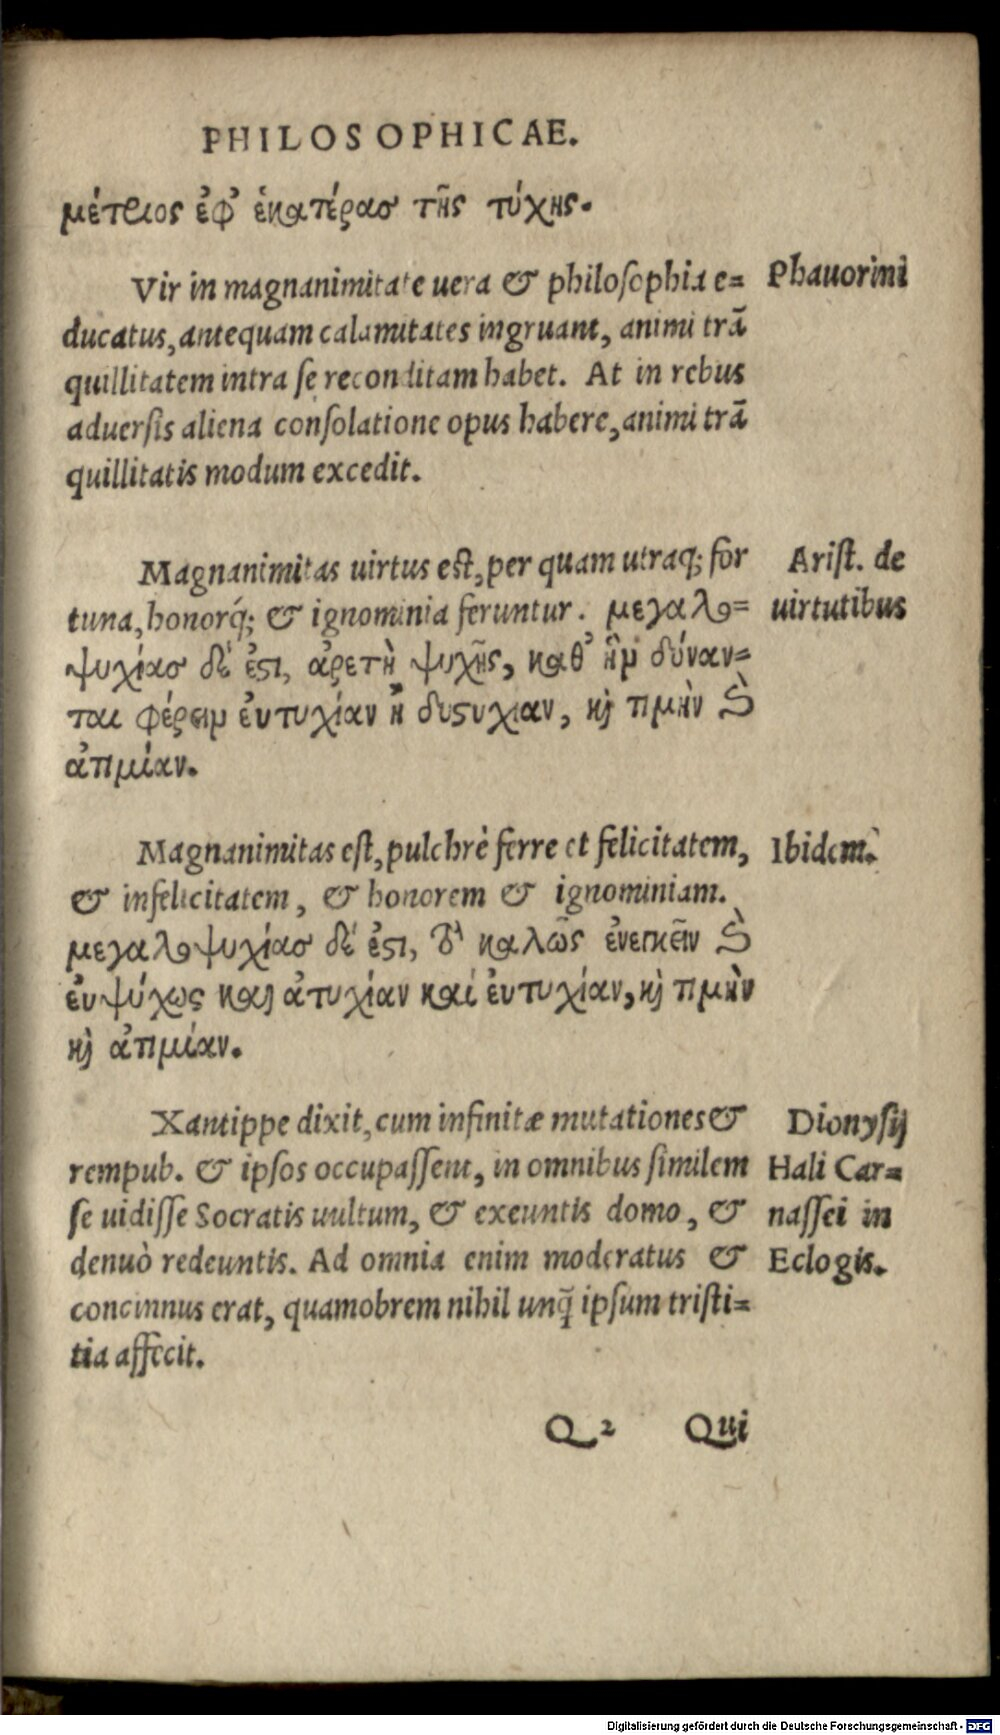 PHILOSOPHICAE.
μέτριος ἐφ' ἑκατέρας τῆς τύχης.
Vir in magnanimitate uera & philosophia e=
Phauorini
ducatus, antequam calamitates ingruant, animi trã
quillitatem intra se reconditam habet. At in rebus
aduersis aliena consolatione opus habere, animi trã
quillitatis modum excedit.
Magnanimitas uirtus est, per quam utraq; for
Arist. de
tuna, honorq́; & ignominia feruntur. μεγαλο=
uirtutibus
ψυχίας δέ ἐστι, ἀρετὴ ψυχῆς, καθ' ἣν δύναν=
ται φέρειν ἐυτυχίαν ἢ δυστυχιαν, καὶ τιμὴν καὶ
ἀτιμίαν.
Magnanimitas est, pulchrè ferre et felicitatem,
Ibidem.
& infelicitatem, & honorem & ignominiam.
μεγαλοψυχίας δέ ἐστι, τὸ καλῶς ἐνεγκεῖν καὶ
ἐυψύχως καὶ ἀτυχίαν καί ἐυτυχίαν, καὶ τιμὴν
καὶ ἀτιμίαν.
Xantippe dixit, cum infinitæ mutationes &
Dionysij
rempub. & ipsos occupassent, in omnibus similem
Hali Car=
se uidisse Socratis uultum, & exeuntis domo, &
nassei in
denuò redeuntis. Ad omnia enim moderatus &
Eclogis.
concinnus erat, quamobrem nihil unq̃ ipsum tristi=
tia affecit.
Q 2 Qui
Digitalisierung gefördert durch die Deutsche Forschungsgemeinschaft - DFG